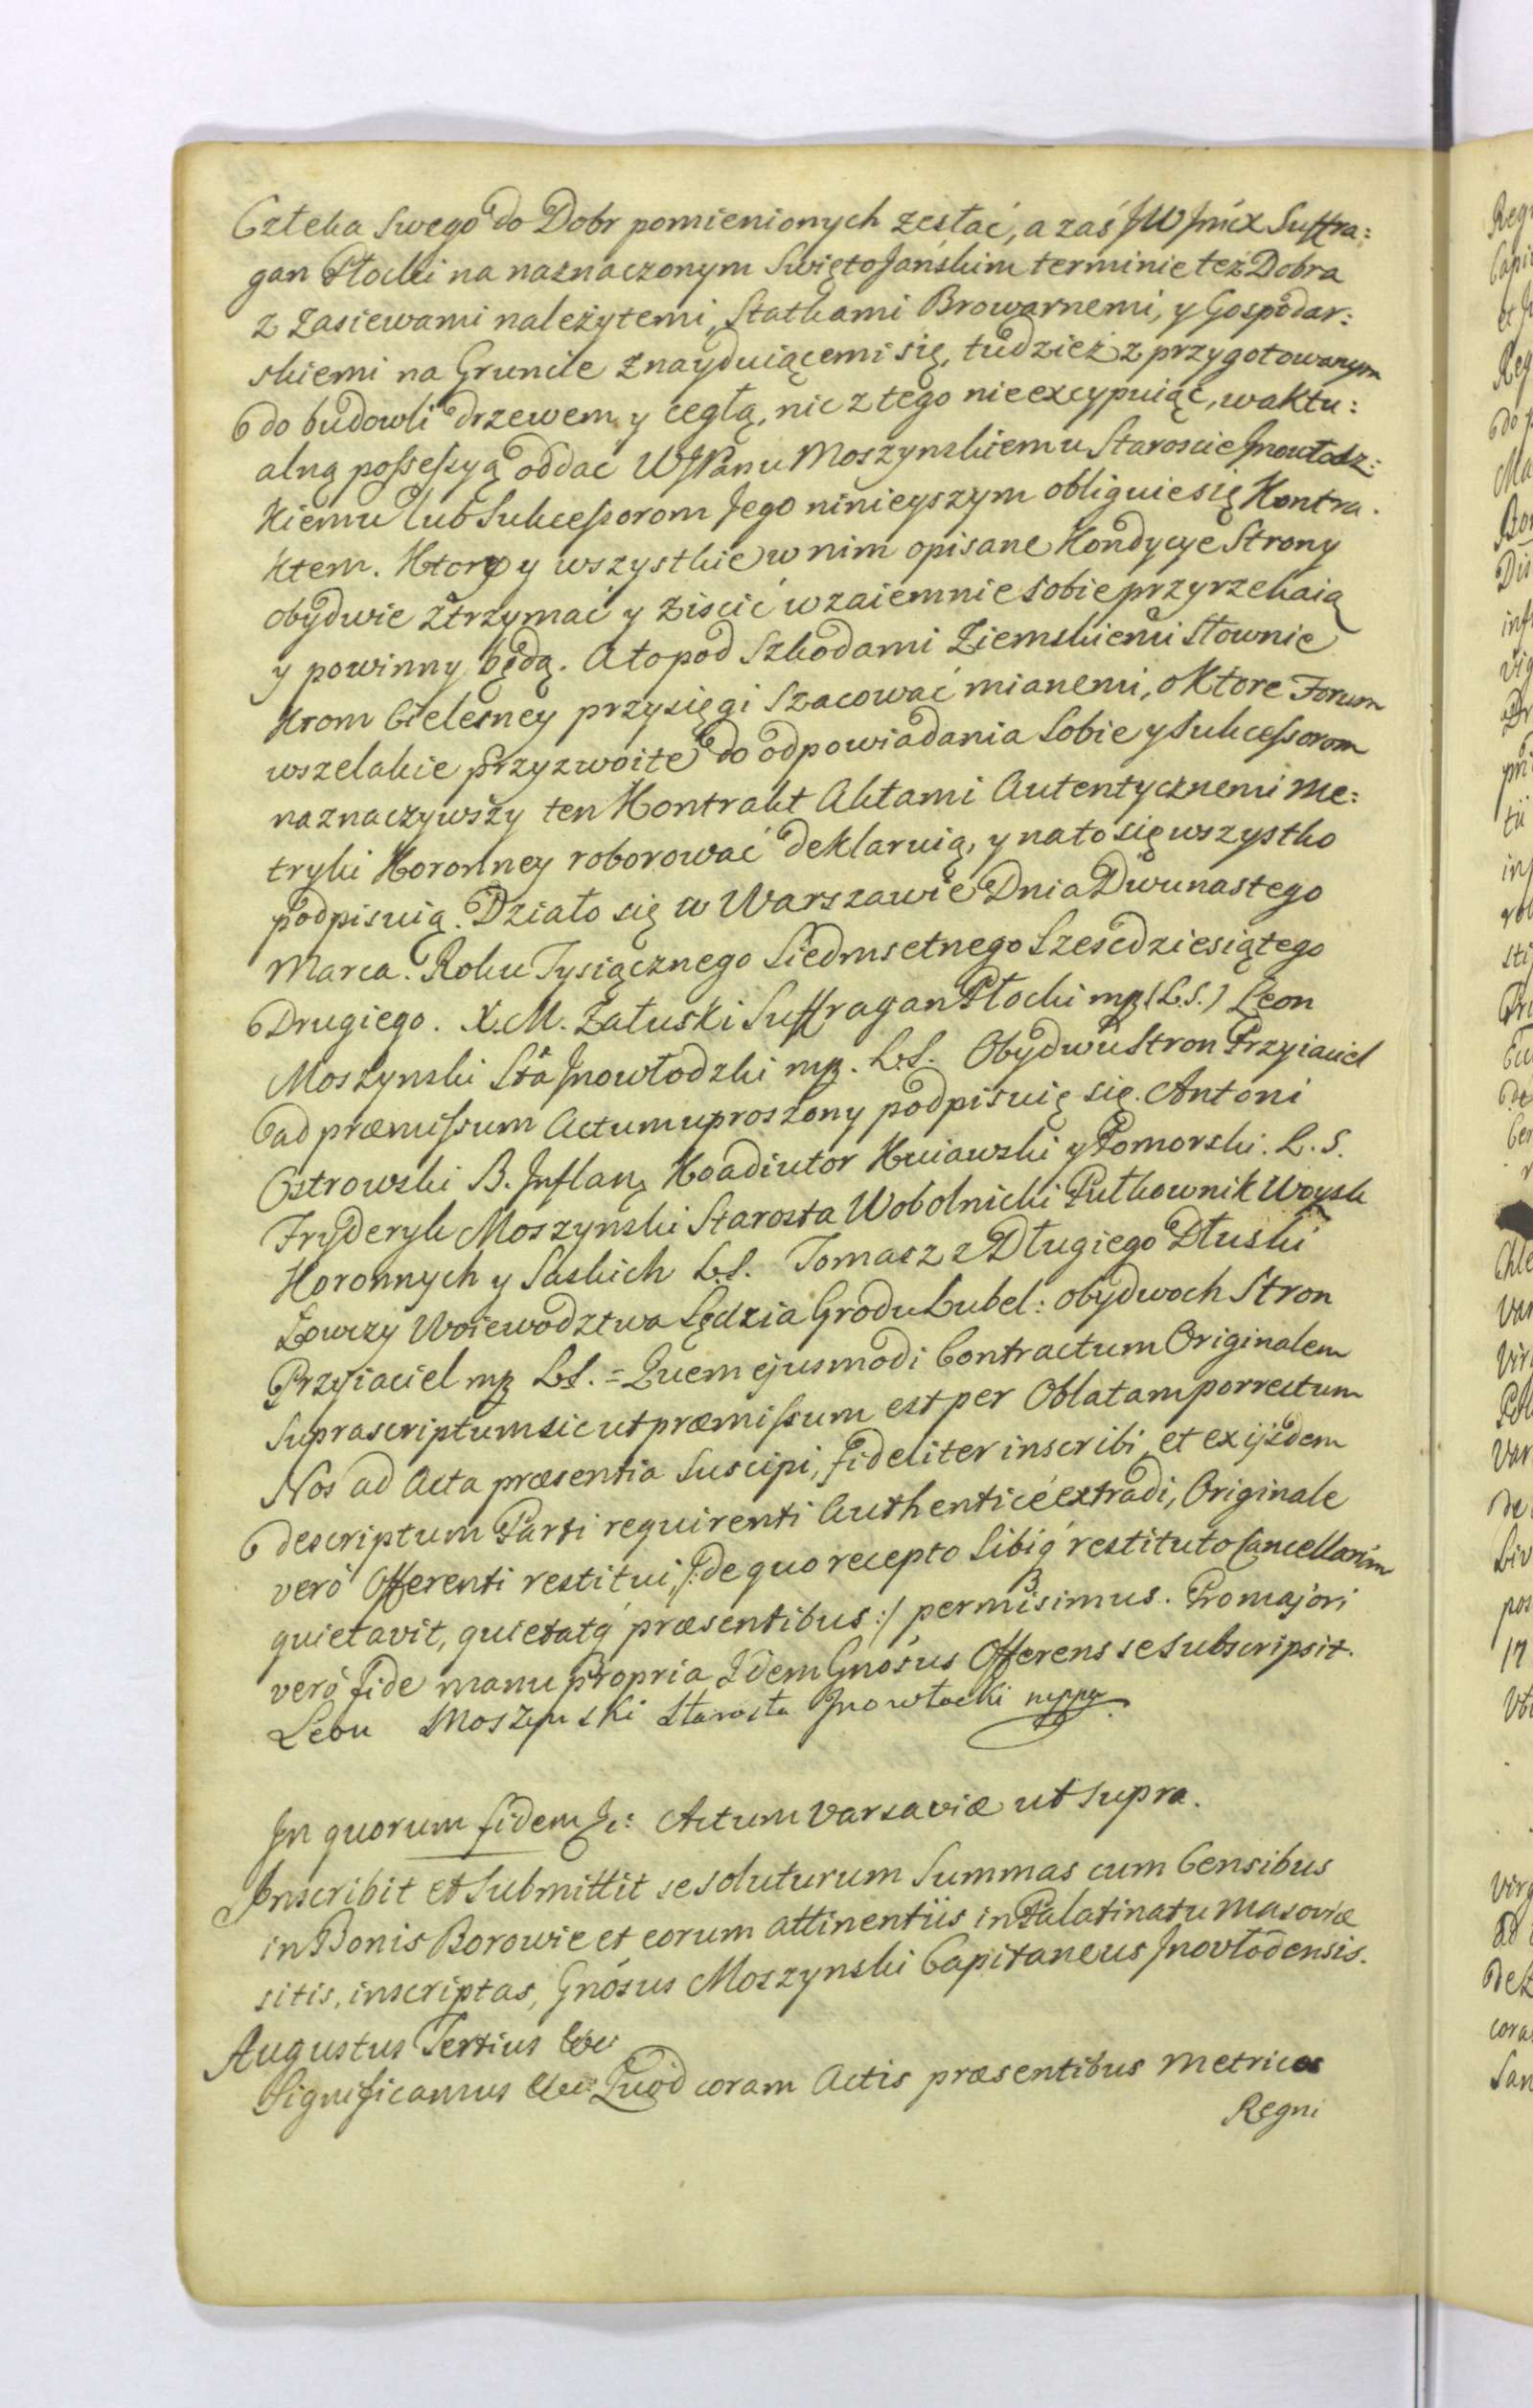 Człeka Swego do Dobr pomienionych zesłać, a zaś JW Jmćx Suffra:
gan Płocki na naznaczonym Swięto Jańskim terminie też Dobra
z Zasiewami należytemi, Statkami Browarnemi, y Gospodar:
skiemi na Gruncie znayduiącemi się, tudzież z przygotowanym
do budowli drzewem y cegłą, nic z tego nie excypuiąc, w aktu:
alną possessyą oddać WJPanu Moszynskiemu Staroscie Jnowłodz:
kiemu lub Sukcessorom Jego ninieyszym obliguie się Kontra.
ktem. Ktory y wszystkie w nim opisane Kondycye Strony
obydwie ztrzymać y ziscić wzaiemnie sobie przyrzekaią
y powinny będą. A to pod Szkodami Ziemskiemi Słownie
Krom Cielesney przysięgi Szacować mianemi, o Ktore Forum
wszelakie przyzwoite do odpowiadania Sobie y Sukcessorom
naznaczywszy ten Kontrakt Aktami Autentycznemi Me:
tryki Koronney roborować deklaruią, y na to się wszystko
podpisuią. Działo się w Warszawie Dnia Dwunastego
Marca. Roku Tysiącznego Siedmsetnego Szescdziesiątego
Drugiego. X. M. Załuski Suffragan Płocki mp (L.S.) Leon
Moszynski Stta Jnowłodzki mp. L.S. Obydwu Stron Przyiaciel
ad præmissum Actum uproszony podpisuię się. Antoni
Ostrowski B. Jnflan, Koadiutor Kuiawski y Pomorski. L. S.
Fryderyk Moszynski Starosta Wobolnicki Pułkownik Woysk
Koronnych y Saskich L.S. Tomasz z Długiego Dłuski
Łowczy Woiewodztwa Sędzia Grodu Lubel: obydwoch Stron
Przyiaciel mp L.S. = Quem ejusmodi Contractum Originalem
Suprascriptum sic ut præmissum est per Oblatam porrectum
Nos ad Acta præsentia Suscipi, fideliter inscribi, et ex ijsdem
descriptum Parti requirenti Authenticè extradi, Originale
verò Offerenti restitui /: de quo recepto Sibiq́ restituto Cancellariam
quietavit, quietatq́ præsentibus :/ permisimus. Pro majori
verò fide manu propria Idem Gnosus Offerens se subscripsit.
Leon Moszynski Starosta Jnowłocki mppa

Jn quorum fidem &c: Actum Varsaviæ ut supra.
Jnscribit et Submittit se soluturum Summas cum Censibus
in Bonis Borowie et eorum attinentiis in Palatinatu Masoviæ
sitis, inscriptas, Gnósus Moszynski Capitaneus Jnovlodensis.
Augustus Tertius &c
Significamus &c Quod coram Actis præsentibus Metrices
Regni